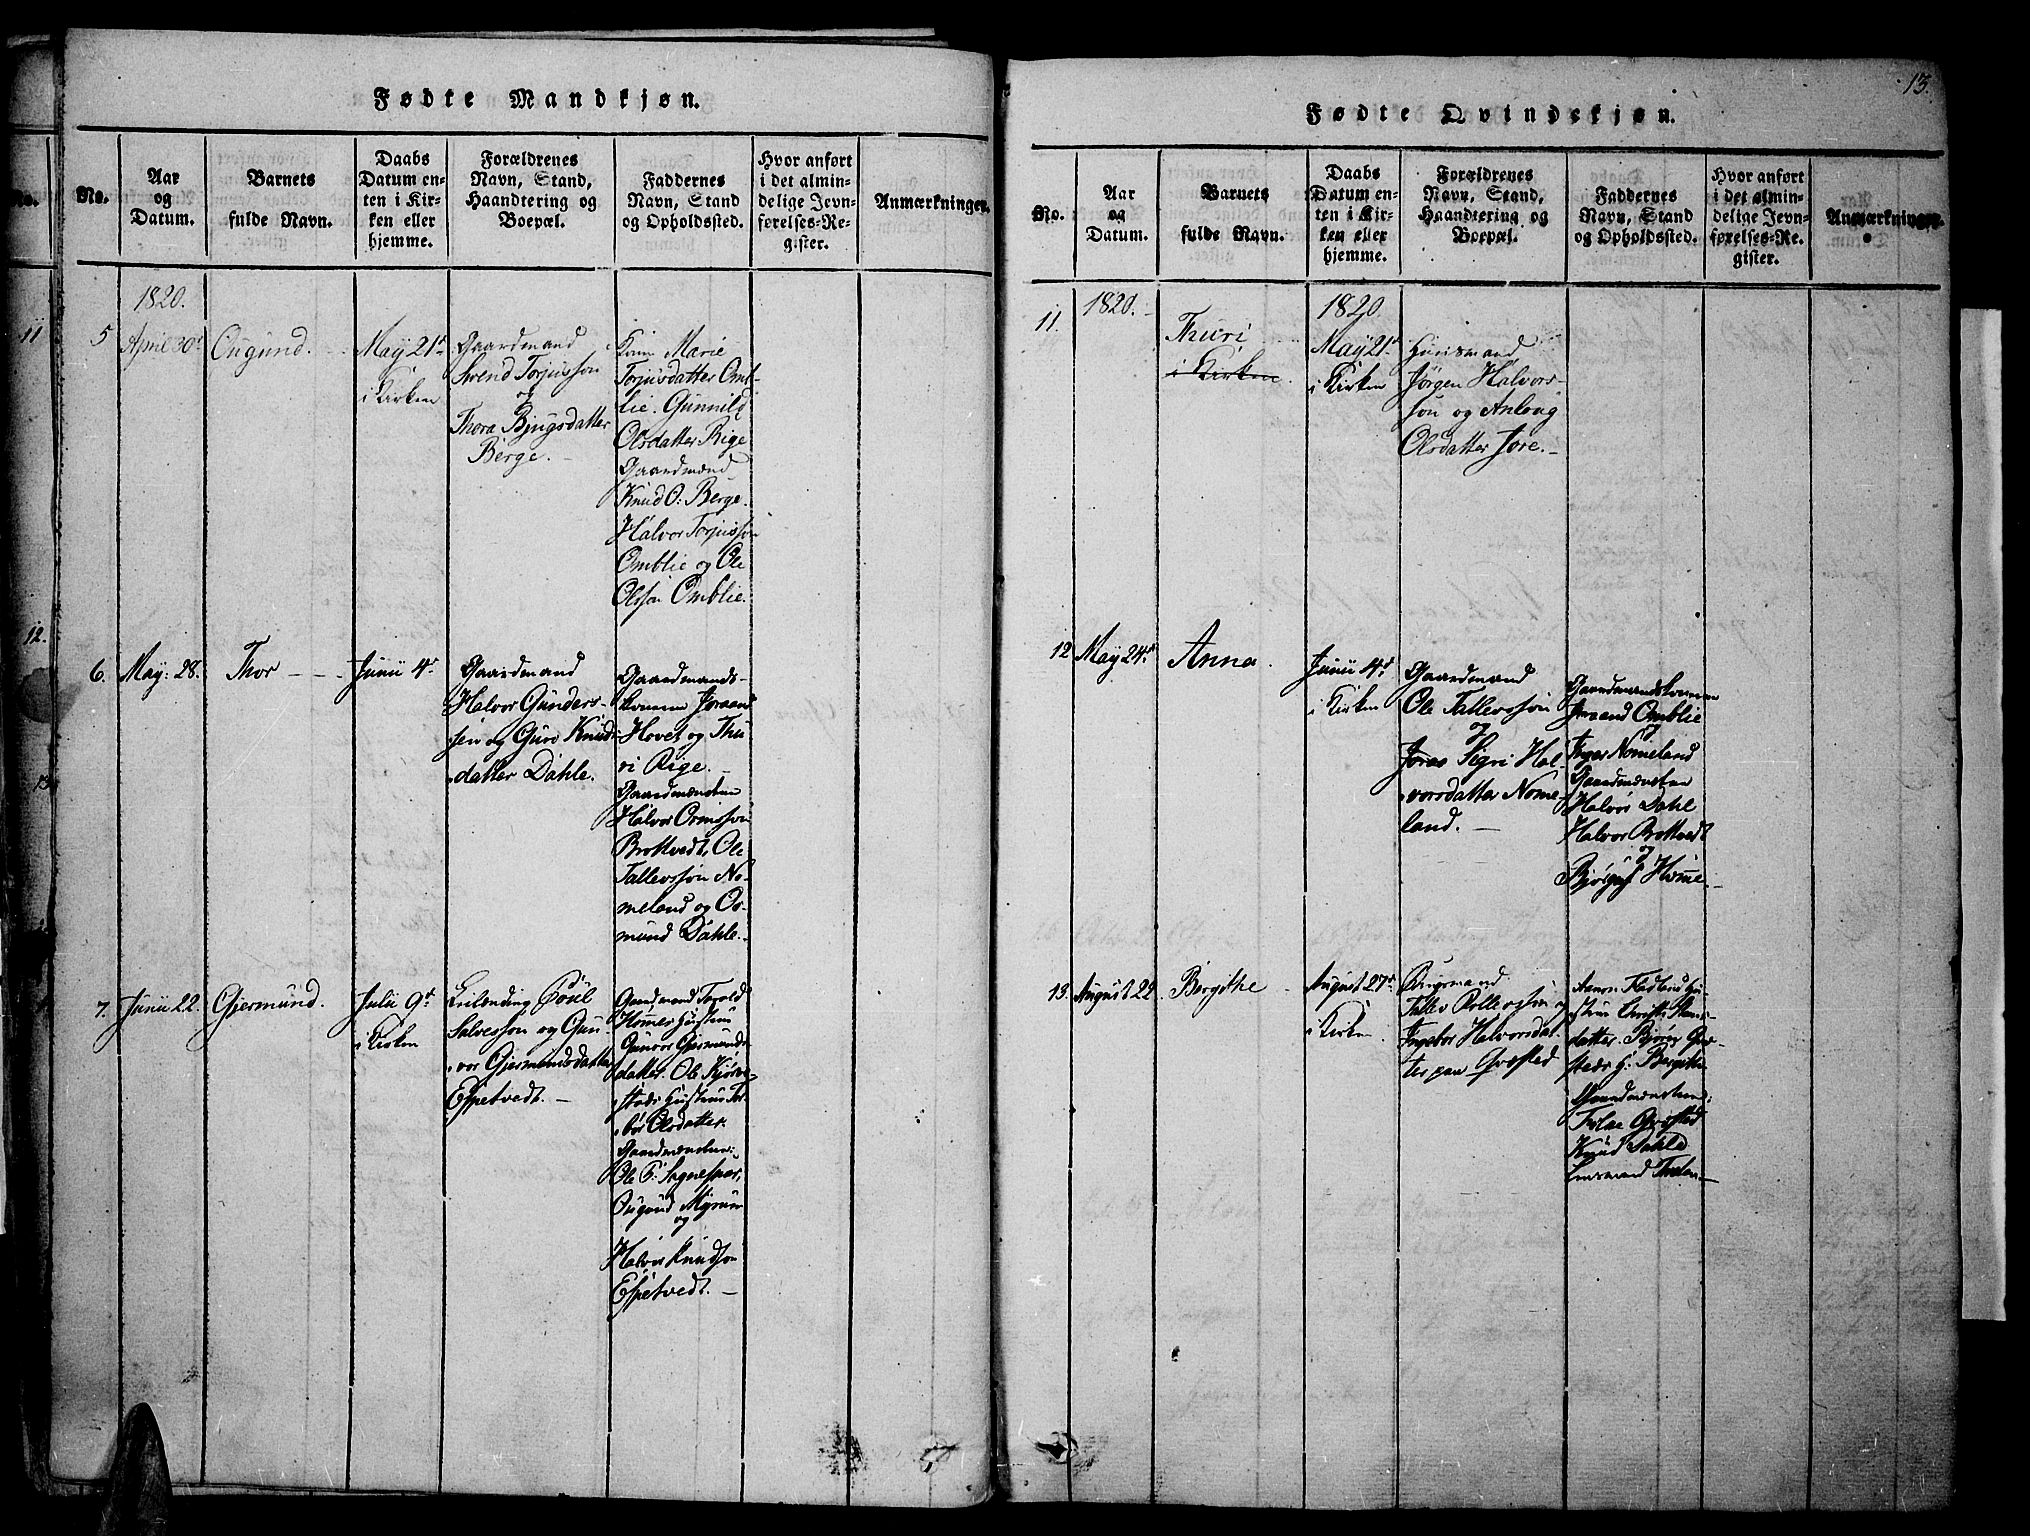 Fødte Mandkjøn.
No.
Aar
og
Datum.
Barnets
fulde Navn.
Daabs
Datum en-
ten i Kir-
ken eller
hjemme.
Forældrenes
Navn, Stand,
Haandtering og
Boepæl.
Faddernes
Navn, Stand
og Opholdssted.
Hvor anført
i det almin-
delige Jevn-
førelses-Re-
gister.
Anmærkninger.
1820.
5
April 30t
Ougund.
May 21d
i Kirken
Gaardmand
Svend Torjusson
og
Thora Bjugsdatter
Berge.
Marie
Torjusdatter Omb-
lie. Gunnild
Olsdatter Rige
Gaardmænd
Knud O: Berge.
Halvor Torjusson
Omblie og Ole
Olsson Omblie.
6.
May: 28.
Thor
Junii 4d
Gaardmand
Halvor Gunders-
søn og Guro Knuds-
datter Dahle.
Gaardmands-
konerne Joraand
Hovet og Thu-
ri Rige.
Gaardmændene
Halvor Ormsson
Brottvedt, Ole
Tallevssøn No-
meland og Os-
mund Dahle.
7.
Junii 22.
Gjermund.
Julii 9d
i Kirken
Leilending Poul
Salvesson og Gun-
vor Gjermundsdatter
Espetvedt.
Gaardmand Torold
Homes Hustrue
Gunvor Gjermunds-
datter. Ole Kjørve-
steds Hustrue Tor-
bor Olsdatter.
Gaardmændene:
Ole T: Sagnespar,
Ougund Myrum
og
Halvor Knudson
Espetvedt.
11
12.
13
13.
Fødte Qvindekjøn.
No.
Aar
og
Datum.
Barnets
fulde Navn.
Daabs
Datum en-
ten i Kir-
ken eller
hjemme.
Forældrenes
Navn, Stand,
Haandtering og
Boepæl.
Faddernes
Navn, Stand
og Opholdssted.
Hvor anført
i det almin-
delige Jevn-
førelses-Re-
gister.
Anmærkninger.
11.
1820.
Thuri
i Kirken
1820.
May 21d
i Kirken
Huusmand
Jørgen Halvors-
son og Anloug
Olsdatter Jore.
12
May 24d
Anna.
Junii 4d
i Kirken
Gaardmand
Ole Tallevssøn
og
Joras Sigri Hal-
vorsdatter Nome-
land.
Gaardmandskonerne
Joraand Omblie
og
Inger Nomeland
Gaardmændene
Halvor Dahle
Halvor Brottvedt
og
Bjørguf Home
13.
August 22
Bergithe
August 27d
i Kirken
Tallev Rollevssøn og
Ingebor Halvorsdat-
ter paa Qvæsted
Aanon Fladlund Hu-
strue
datter. Bjørn
H: Bergithe
Gaardmændene:
Qvæsted
Knud Dahle